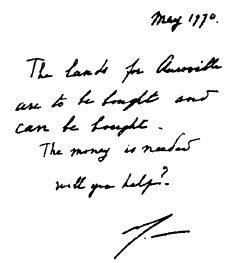 May 1970.
The lands for Auroville
are to be bought and
can be bought.
The money is needed
will you help?